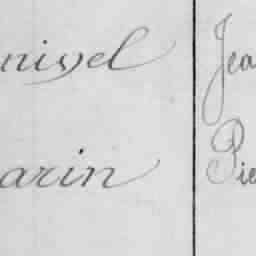 nivel Jea
arin Pie